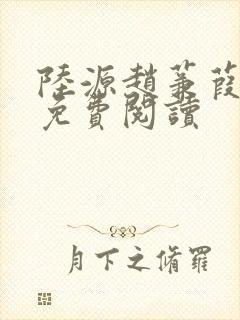 陸源趙蒹葭
免費閱讀
月下之脩羅